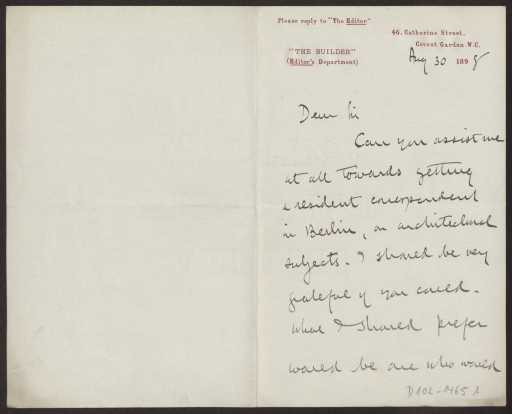 Please reply to "The Editor"
46, Catherine Street,
Covent Garden. W.C.
"THE BUILDER"
(Editor's Department)
Aug 30 1898
Dear Sir
Can you assist me
at all towards getting
a resident correspondent
in Berlin, on architectural
subjects. I should be very
grateful if you could.
What I should prefer
would be one who would
D102-0465 1